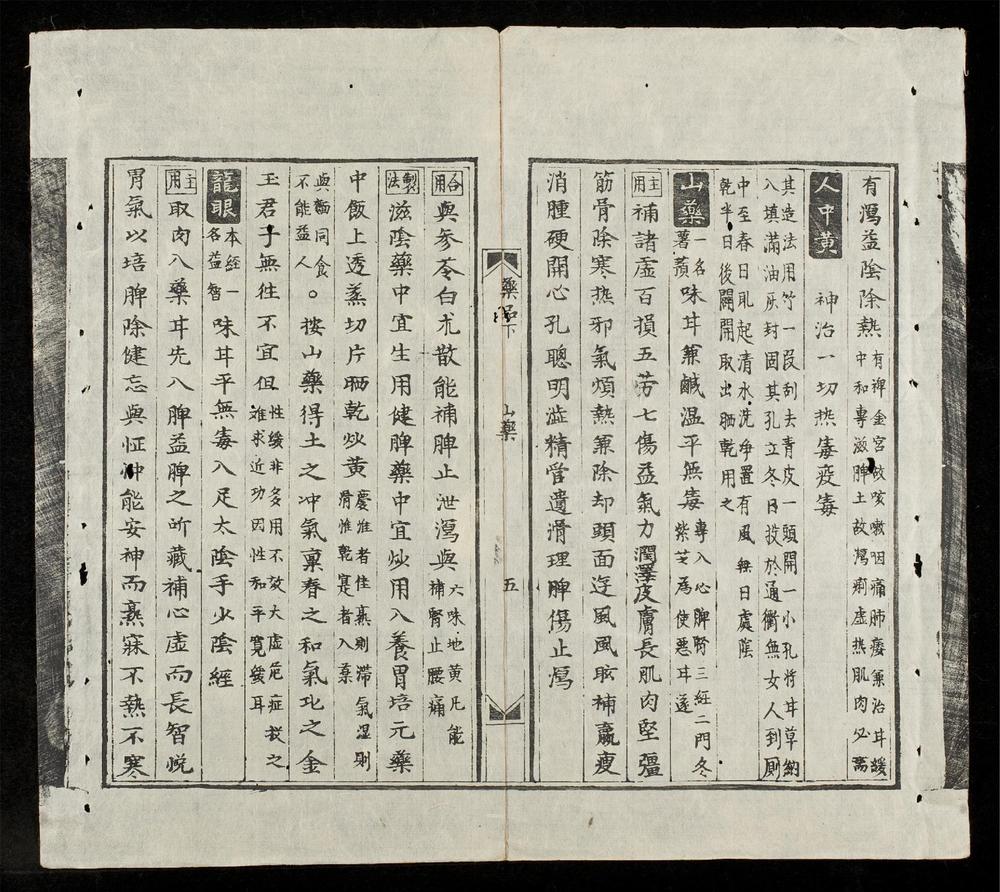 有瀉益陰除熱有裨金宮咳嗽咽痛肺痿兼治耳緩
中和專滋脾土故瀉痢虛热肌肉必需
人中黄 神治一切热毒疫毒
其造法用竹一段刮去青皮一頭開一小孔将甘草納
入填滿油灰封固其孔立冬日投於通衢無女人到厠
中至春日取起清水洗净置有風無日處陰
乾半日後關開取出晒乾用之
山藥一名薯蕷味甘兼鹹温平無毒專入心脾腎三經二門冬
紫芝為使悪甘遂
主用補諸虛百損五劳七傷益氣力潤澤皮膚長肌肉堅彊
筋骨除寒热邪氣煩熱兼除却頭面逰風風眩補羸瘦
消腫硬開心孔聰明澁精管遺滑理脾傷止瀉
藥品下 山藥 五
合用與参苓白朮散能補脾止泄瀉與六味地黄凡能
補腎止腰痛
製法滋陰藥中宜生用健脾藥中宜炒用入養胃培元藥
中飯上透蒸切片晒乾炒黄慶淮者佳熏則滞氣湿則
滑惟乾寔者入藥
與麵同食
不能益人。按山藥得土之冲氣稟春之和氣比之金
玉君子無往不宜但性緩非多用不效大虛危症救之
难求近功因性和平寬緩耳
龍眼本經一名益智味甘平無毒入足太陰手少陰經
主用取肉入藥甘先入脾益脾之所藏補心虛而長智悦
胃氣以培脾除健忘與怔忡能安神而熏寐不熱不寒